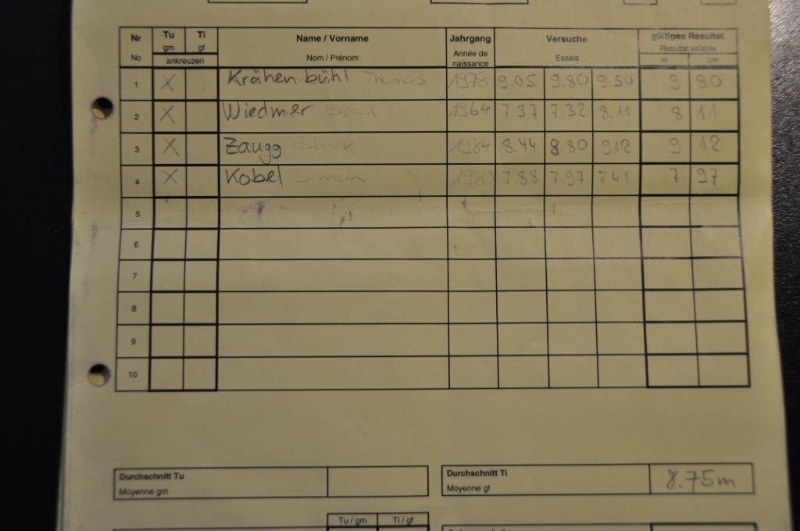 Nr Tu Ti Name / Vorname Jahrgang Versuche gültiges Resultat
No gm gf Nom / Prénom Année de naissance Essais Resultat valable
ankreuzen m cm
1 X Krähenbühl Thomas 1975 9.05 9.80 9.50 9 80
2 X Wiedmer 1964 7.37 7.32 8.11 8 11
3 X Zaugg Patrick 1984 8.44 8.80 9.12 9 12
4 X Kobel Simon 7.88 7.97 7.41 7 97
5
6
7
8
9
10
Durchschnitt Tu Durchschnitt Ti 8.75m
Moyenne gm Moyenne gf
Tu / gm Ti / gf